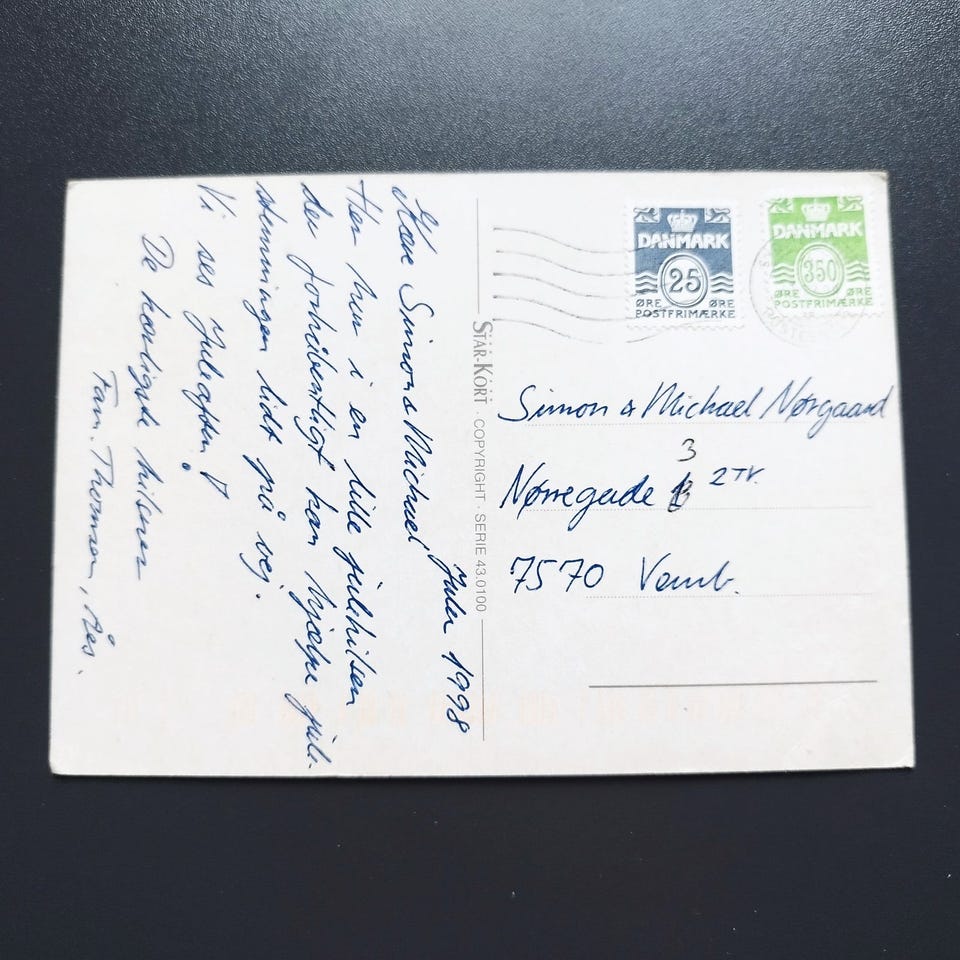 Julen 1998
Kære Simon & Michael
Her kun i en lille julehilsen
der forhåbentligt kan hjælpe jule-
stemningen lidt på vej.
Vi ses Juleaften!
De kærligste hilsner
Fam. Thomsen, Aas.
STAR-KORT · COPYRIGHT · SERIE 43.0100
DANMARK
25
ØRE ØRE
POSTFRIMÆRKE
DANMARK
350
ØRE ØRE
POSTFRIMÆRKE
Simon & Michael Nørgaard
3
Nørregade 2 TV.
7570 Vemb.